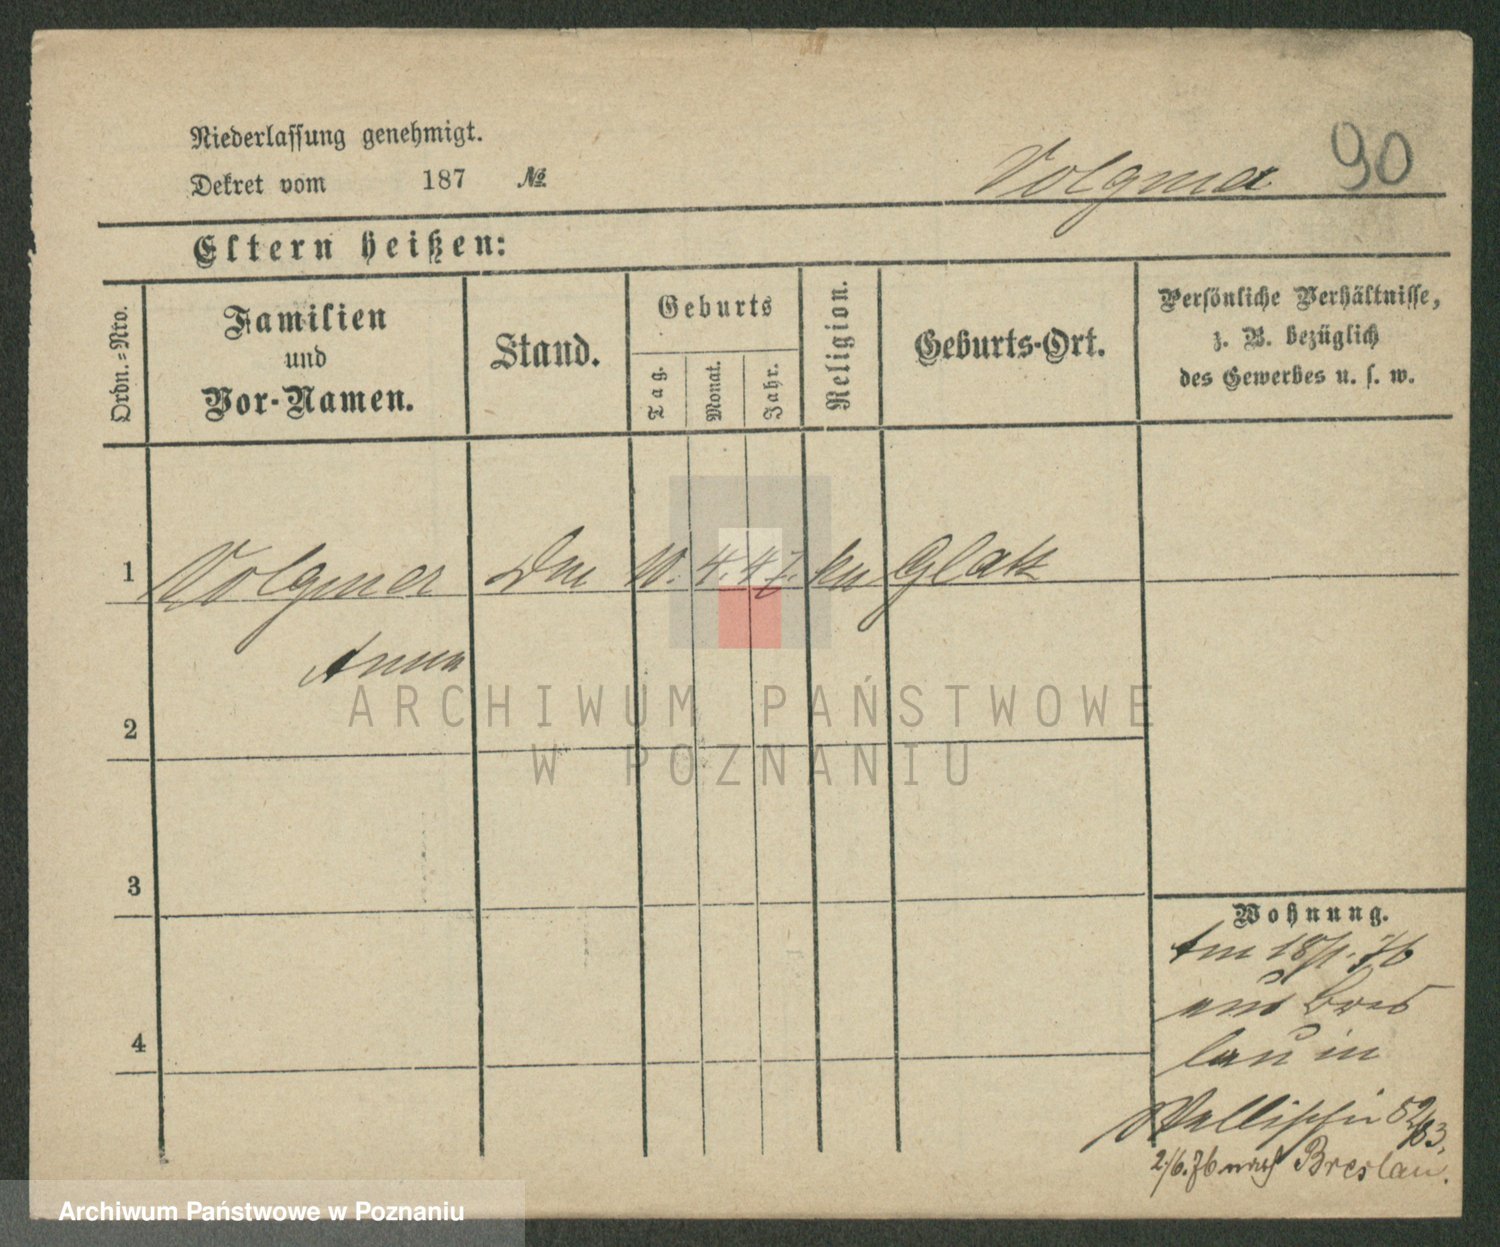 Niederlassung genehmigt.
Dekret vom 187 №
Volgmer 90
Eltern heißen:
Ordn.-Nro.
Familien
und
Vor-Namen.
Stand.
Geburts
Tag.
Monat.
Jahr.
Religion.
Geburts-Ort.
Persönliche Verhältnisse,
z. B. bezüglich
des Gewerbes u. s. w.
1 Volgmer 4. 47. Glatz
Anna
2
3
4
Wohnung.
Am 18/1. 76
aus Bres
lau in
Wallischei 52/53.
2./6. 76 nach Breslau.
ARCHIWUM PAŃSTWOWE
W POZNANIU
Archiwum Państwowe w Poznaniu